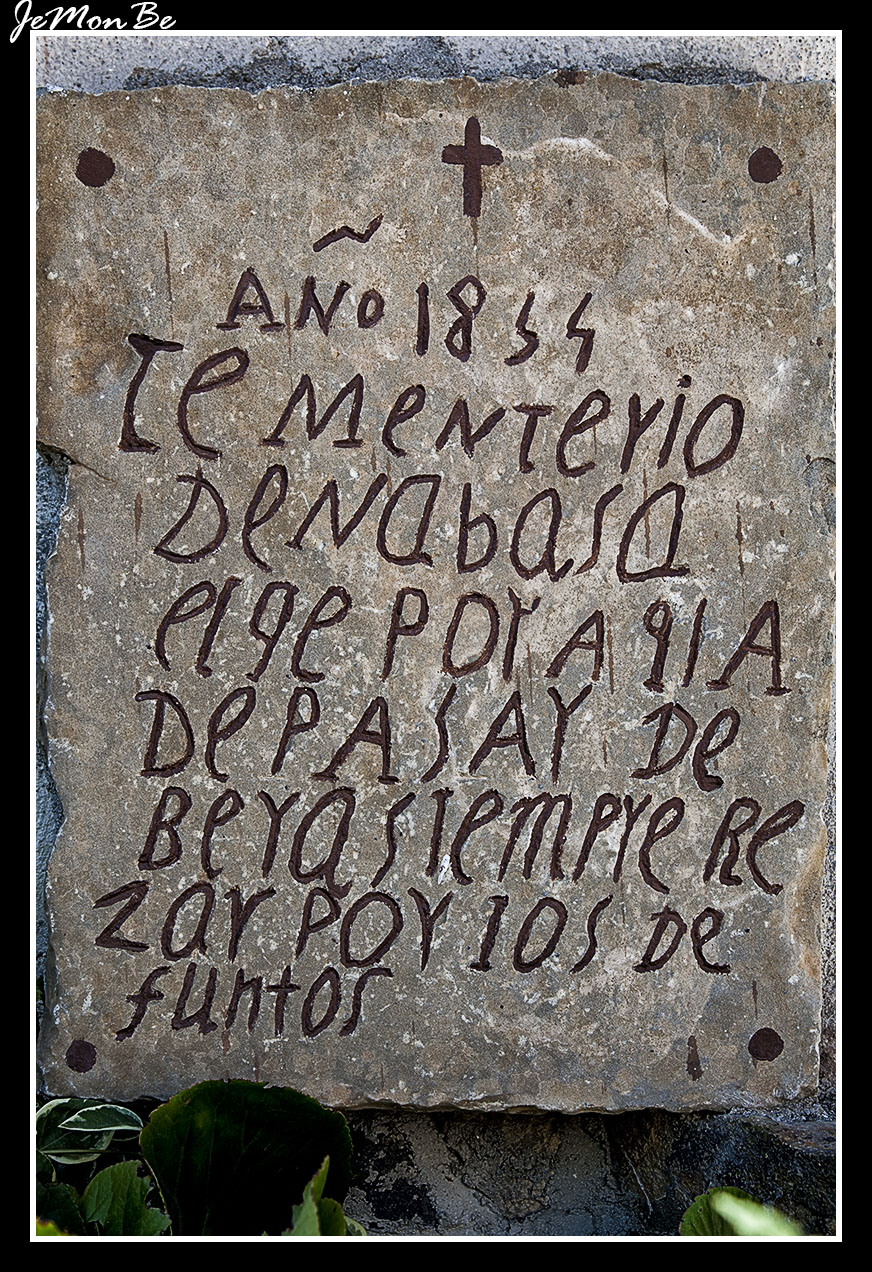 JeMonBe
AÑO 1855
Ce MenTerio
DeNabasa
elqe POr A qIA
DePASAr De
Berasiempre Re
Zar POr los De
funtos